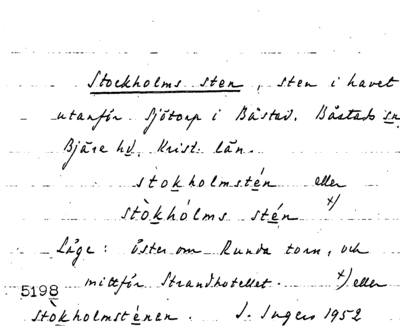 Stockholms sten, sten i havet
utanför Sjötorp i Båstad. Båstads sn,
Bjäre hd. Krist. län.
stokholmstén eller
stòkhólms stén x)
Läge: öster om Runda torn, och
mittför Strandhotellet. x) eller
5198
stòkholmsténen. J. Ingers 1952